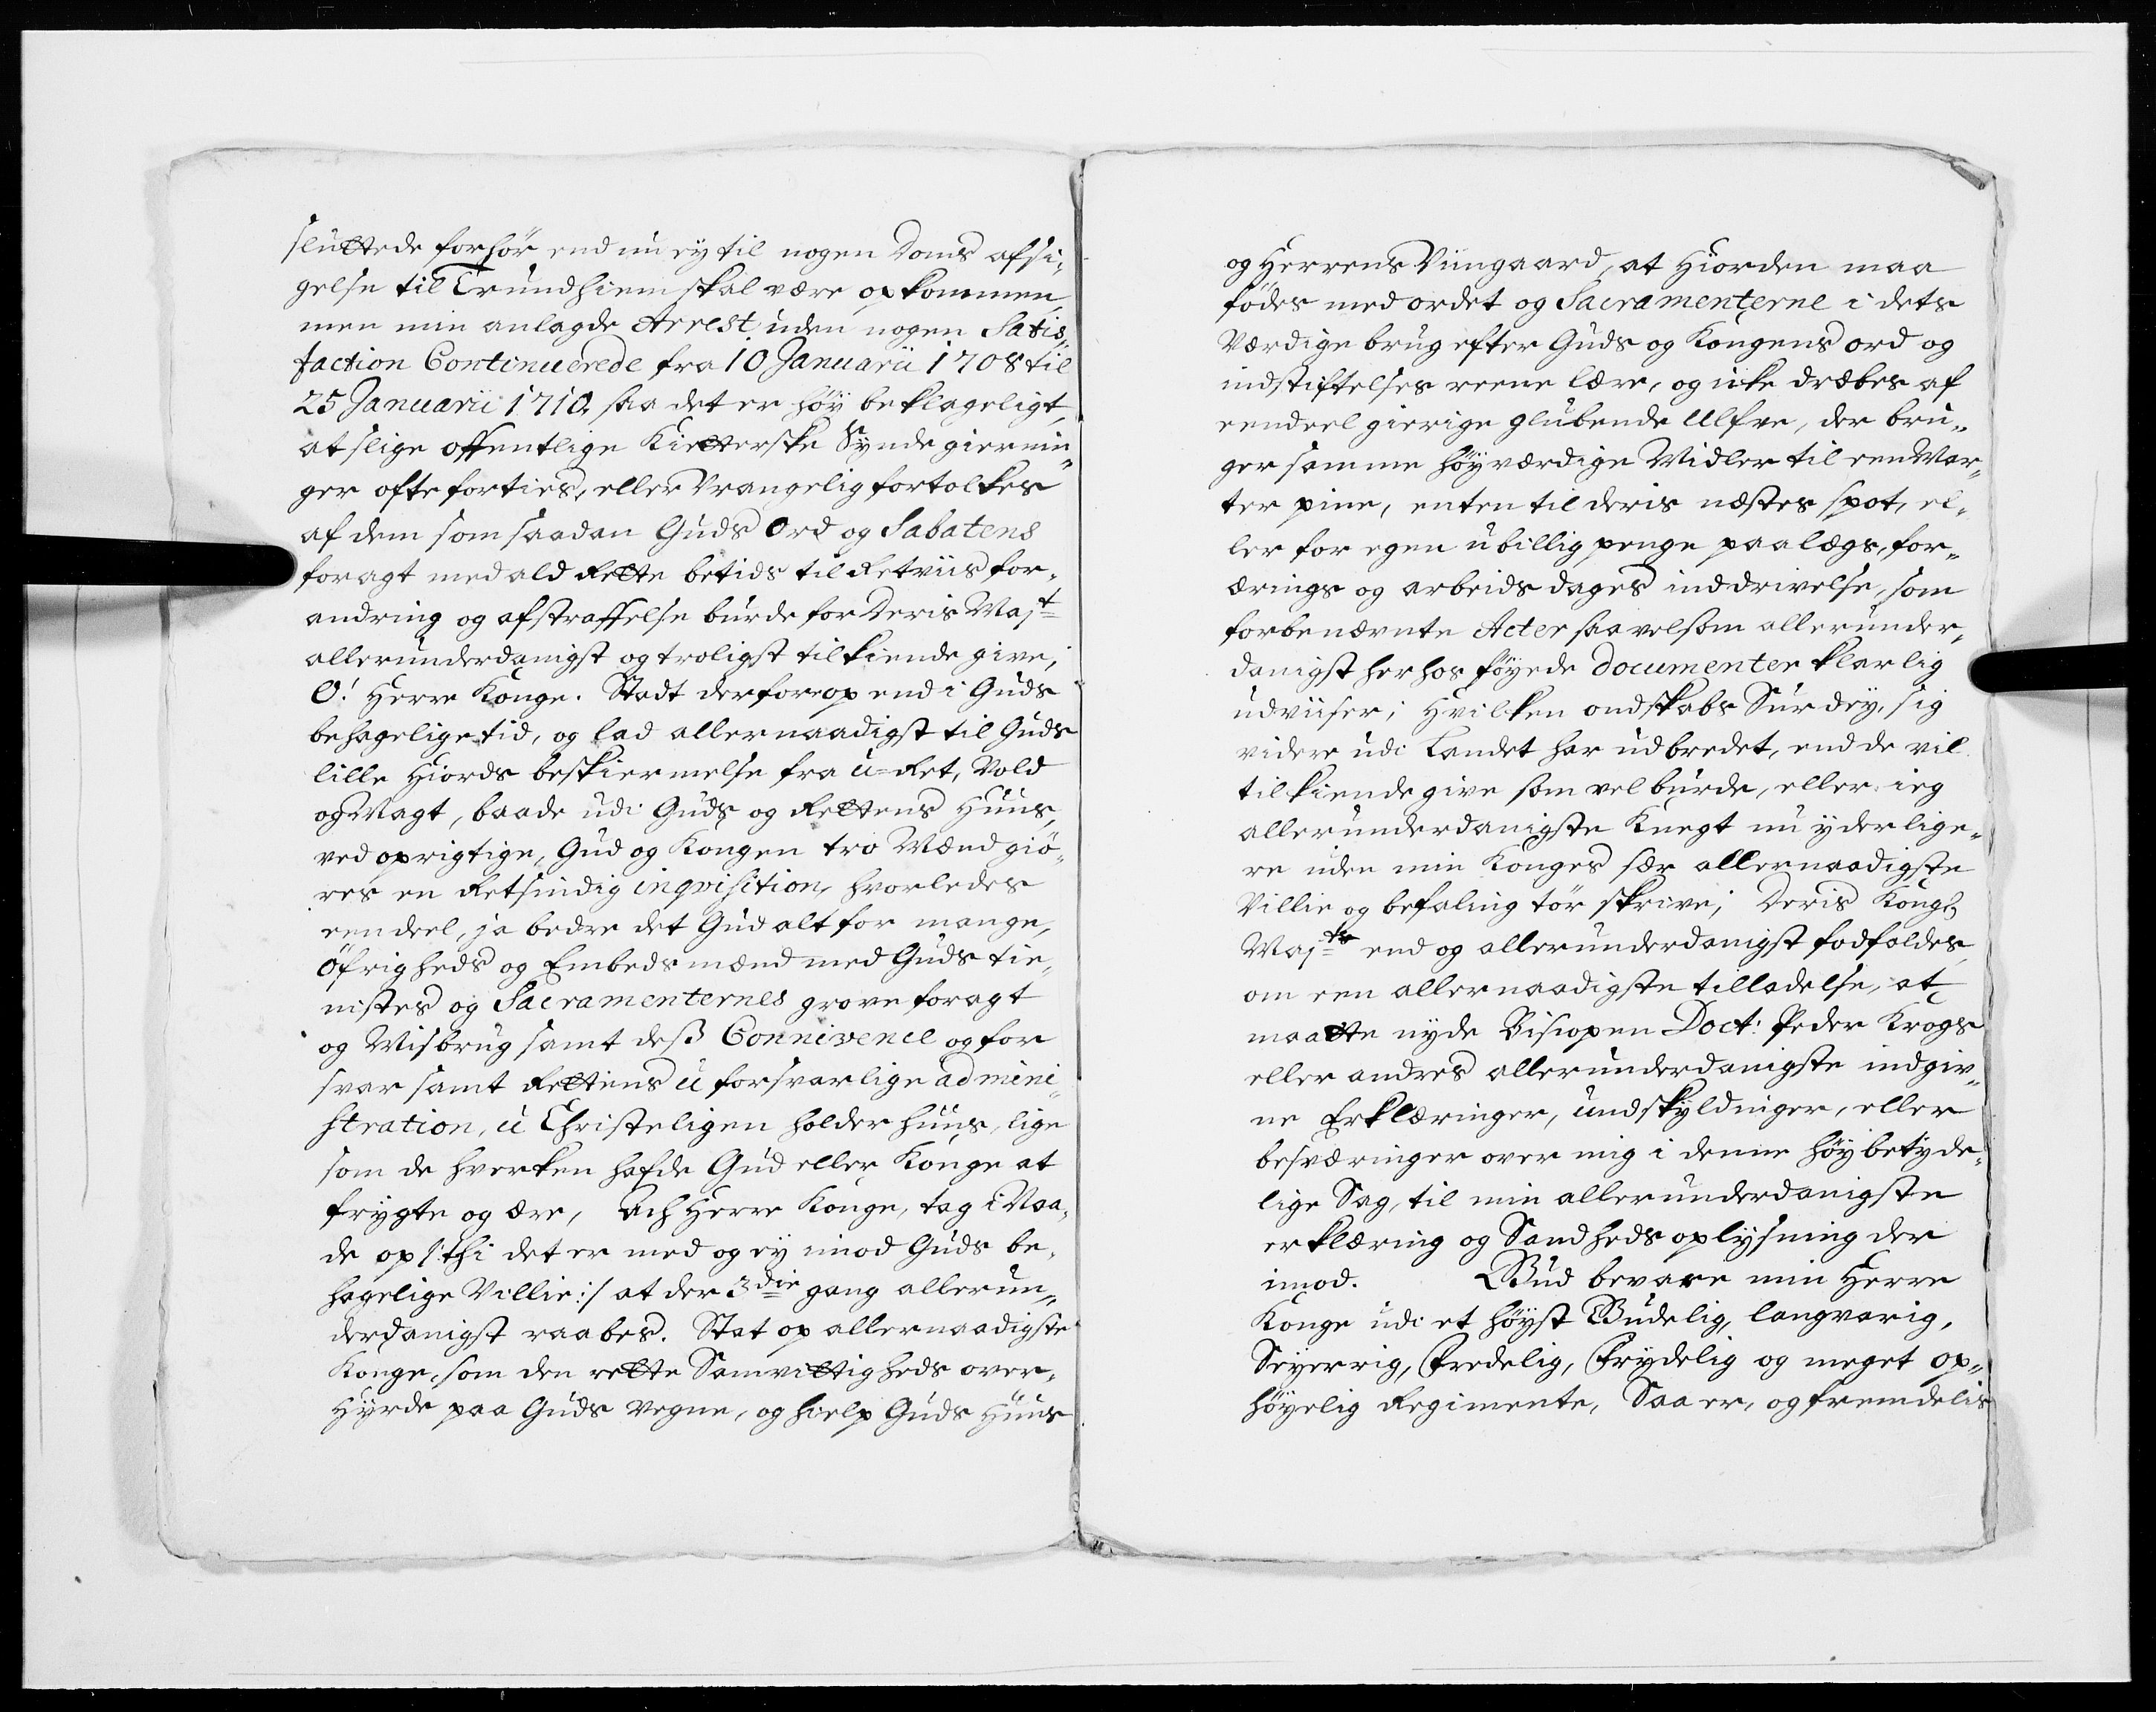 sluttede forhør end nu ey til nogen Doms afsi,
gelse til Trundhiem skal være opkommen
men min anlagde Arrest uden nogen Satis,,
faction Continuerede fra 10 Januarii 1708 til
25 Januarii 1710, saa det er høy beklageligt,
at slige offentlige Kietterske Synde giernin,,
ger ofte forties, eller Vrangelig fortolkes
af dem som saadan Guds Ord og Sabatens
foragt med ald Rette betids til Retviis for,,
andring og afstraffelse burde for Deris Majt
allerunderdanigst og troligst tilkiende give,
O! Herre Konge. Stadt derfore op end i Guds
behagelige tid, og lad allernaadigst til Guds
lille Hiords beskiermelse fra u=Ret, Vold
og Magt, baade udi Guds og Rettens Huus,
ved oprigtige, Gud og Kongen tro Mænd giö,,
res en Retsindig inqvisition, hvorledes
eendeel, ja bedre det Gud alt for mange,
Öfrigheds og Embeds mænd med Guds tie,,
nistes og Sacramenternes grove foragt
og Misbrug samt deß Connivence og for
svar samt Rettens u forsvarlige admini,,
stration, u Christeligen holder huus, lige
som de hverken hafde Gud eller Konge at
frygte og ære, Ach Herre Konge, tag i Naa,
de op /: thi det er med og ey imod Guds be,
hagelige Villie :/ at der 3die gang allerun,,
derdanigst raabes. Stat op allernaadigste
Konge, som den rette Samvittigheds over,
Hyrde paa Guds vegne, og hielp Guds Huus
og Herrens Viingaard, at Hiorden maa
fødes med ordet og Sacramenterne i dets
Værdige brug efter Guds og Kongens ord og
indstiftelses reene lære, og icke dræbes af
eendeel gierige glubende Ulfve, der bru,,
ger samme høyværdige Midler til een Mar,,
ter pine, enten til deris næstes spot, el,
ler for egen ubillig penge paalægs, for,,
ærings og arbeids dages inddrivelse, som
forbenævnte Acter saavelsom allerunder,
danigst herhos føyede documenter klarlig
udviiser; Hvilken ondskabs Surdey, sig
videre udi Landet har udbredet, end de vil
tilkiende give som vel burde, eller ieg
allerunderdanigste Knegt nu yderlige,,
re uden min Konges sær allernaadigste
Villie og befaling tör skrive; Deris Kongl
Majts end og allerunderdanigst fodfaldes,
om een allernaadigste tilladelse, at
maatte nyde Bispen Doct: Peder Krogs
eller andres allerunderdanigste indgiv,,
ne Erklæringer, undskyldninger, eller
besværinger over mig i denne høybetyde,
lige Sag, til min allerunderdanigste
erklæring og Sandheds oplysning der
imod. Gud bevare min Herre
Konge udi et høyst Gudelig, langvarig,
Seyerrig, Fredelig, Frydelig og meget op,,
høyelig Regimente, Saa er, og fremdelis